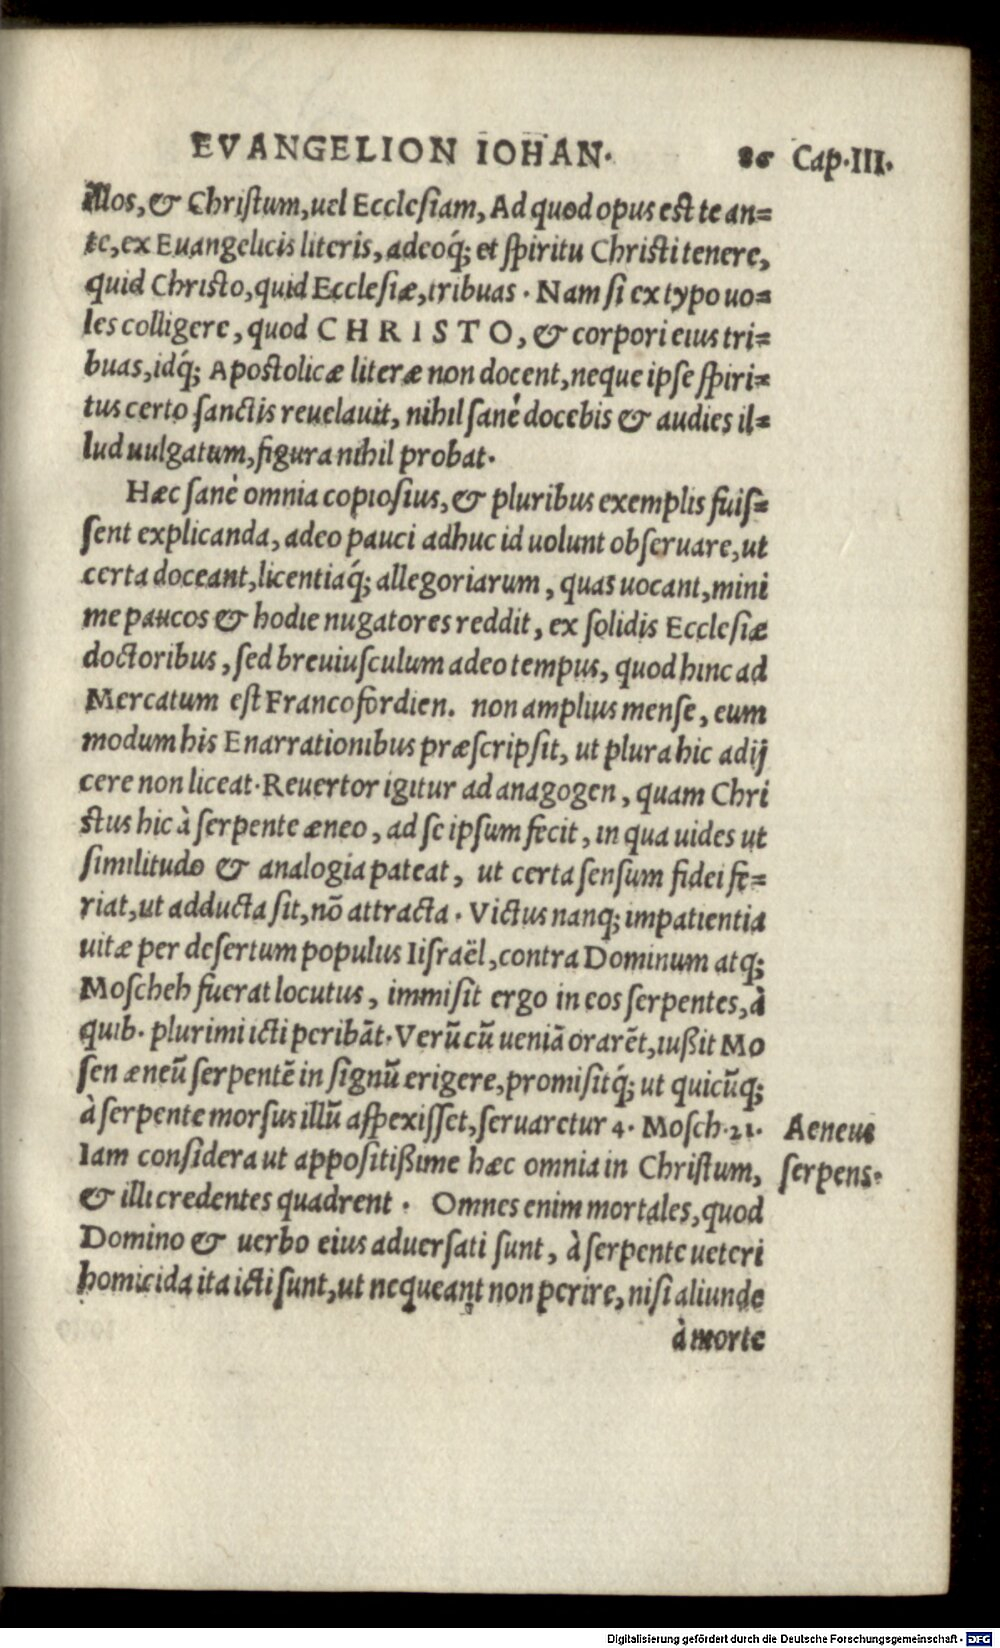 EVANGELION IOHAN. 86 Cap.III.
illos, & Christum, uel Ecclesiam, Ad quod opus est te an=
te, ex Euangelicis literis, adeoq́; et spiritu Christi tenere,
quid Christo, quid Ecclesiæ, tribuas. Nam si ex typo uo=
les colligere, quod CHRISTO, & corpori eius tri=
buas, idq́; Apostolicæ literæ non docent, neque ipse spiri=
tus certo sanctis reuelauit, nihil sanè docebis & audies il=
lud uulgatum, figura nihil probat.
Hæc sanè omnia copiosius, & pluribus exemplis fuis=
sent explicanda, adeo pauci adhuc id uolunt obseruare, ut
certa doceant, licentiaq́; allegoriarum, quas uocant, mini
me paucos & hodie nugatores reddit, ex solidis Ecclesiæ
doctoribus, sed breuiusculum adeo tempus, quod hinc ad
Mercatum est Francofordien. non amplius mense, eum
modum his Enarrationibus præscripsit, ut plura hic adij
cere non liceat. Reuertor igitur ad anagogen, quam Chri
stus hic à serpente æneo, ad se ipsum fecit, in qua uides ut
similitudo & analogia pateat, ut certa sensum fidei fe=
riat, ut adducta sit, nõ attracta. Victus nanq; impatientia
uitæ per desertum populus Iisraël, contra Dominum atq;
Moscheh fuerat locutus, immisit ergo in eos serpentes, à
quib. plurimi icti peribãt. Verũ cũ ueniã orarẽt, iußit Mo
sen æneũ serpentẽ in signũ erigere, promisitq́; ut quicũq;
à serpente morsus illũ aspexisset, seruaretur 4. Mosch.21.
Aeneus
serpens.
Iam considera ut appositißime hæc omnia in Christum,
& illi credentes quadrent. Omnes enim mortales, quod
Domino & uerbo eius aduersati sunt, à serpente ueteri
homicida ita icti sunt, ut nequeant non perire, nisi aliunde
à morte
Digitalisierung gefördert durch die Deutsche Forschungsgemeinschaft - DFG